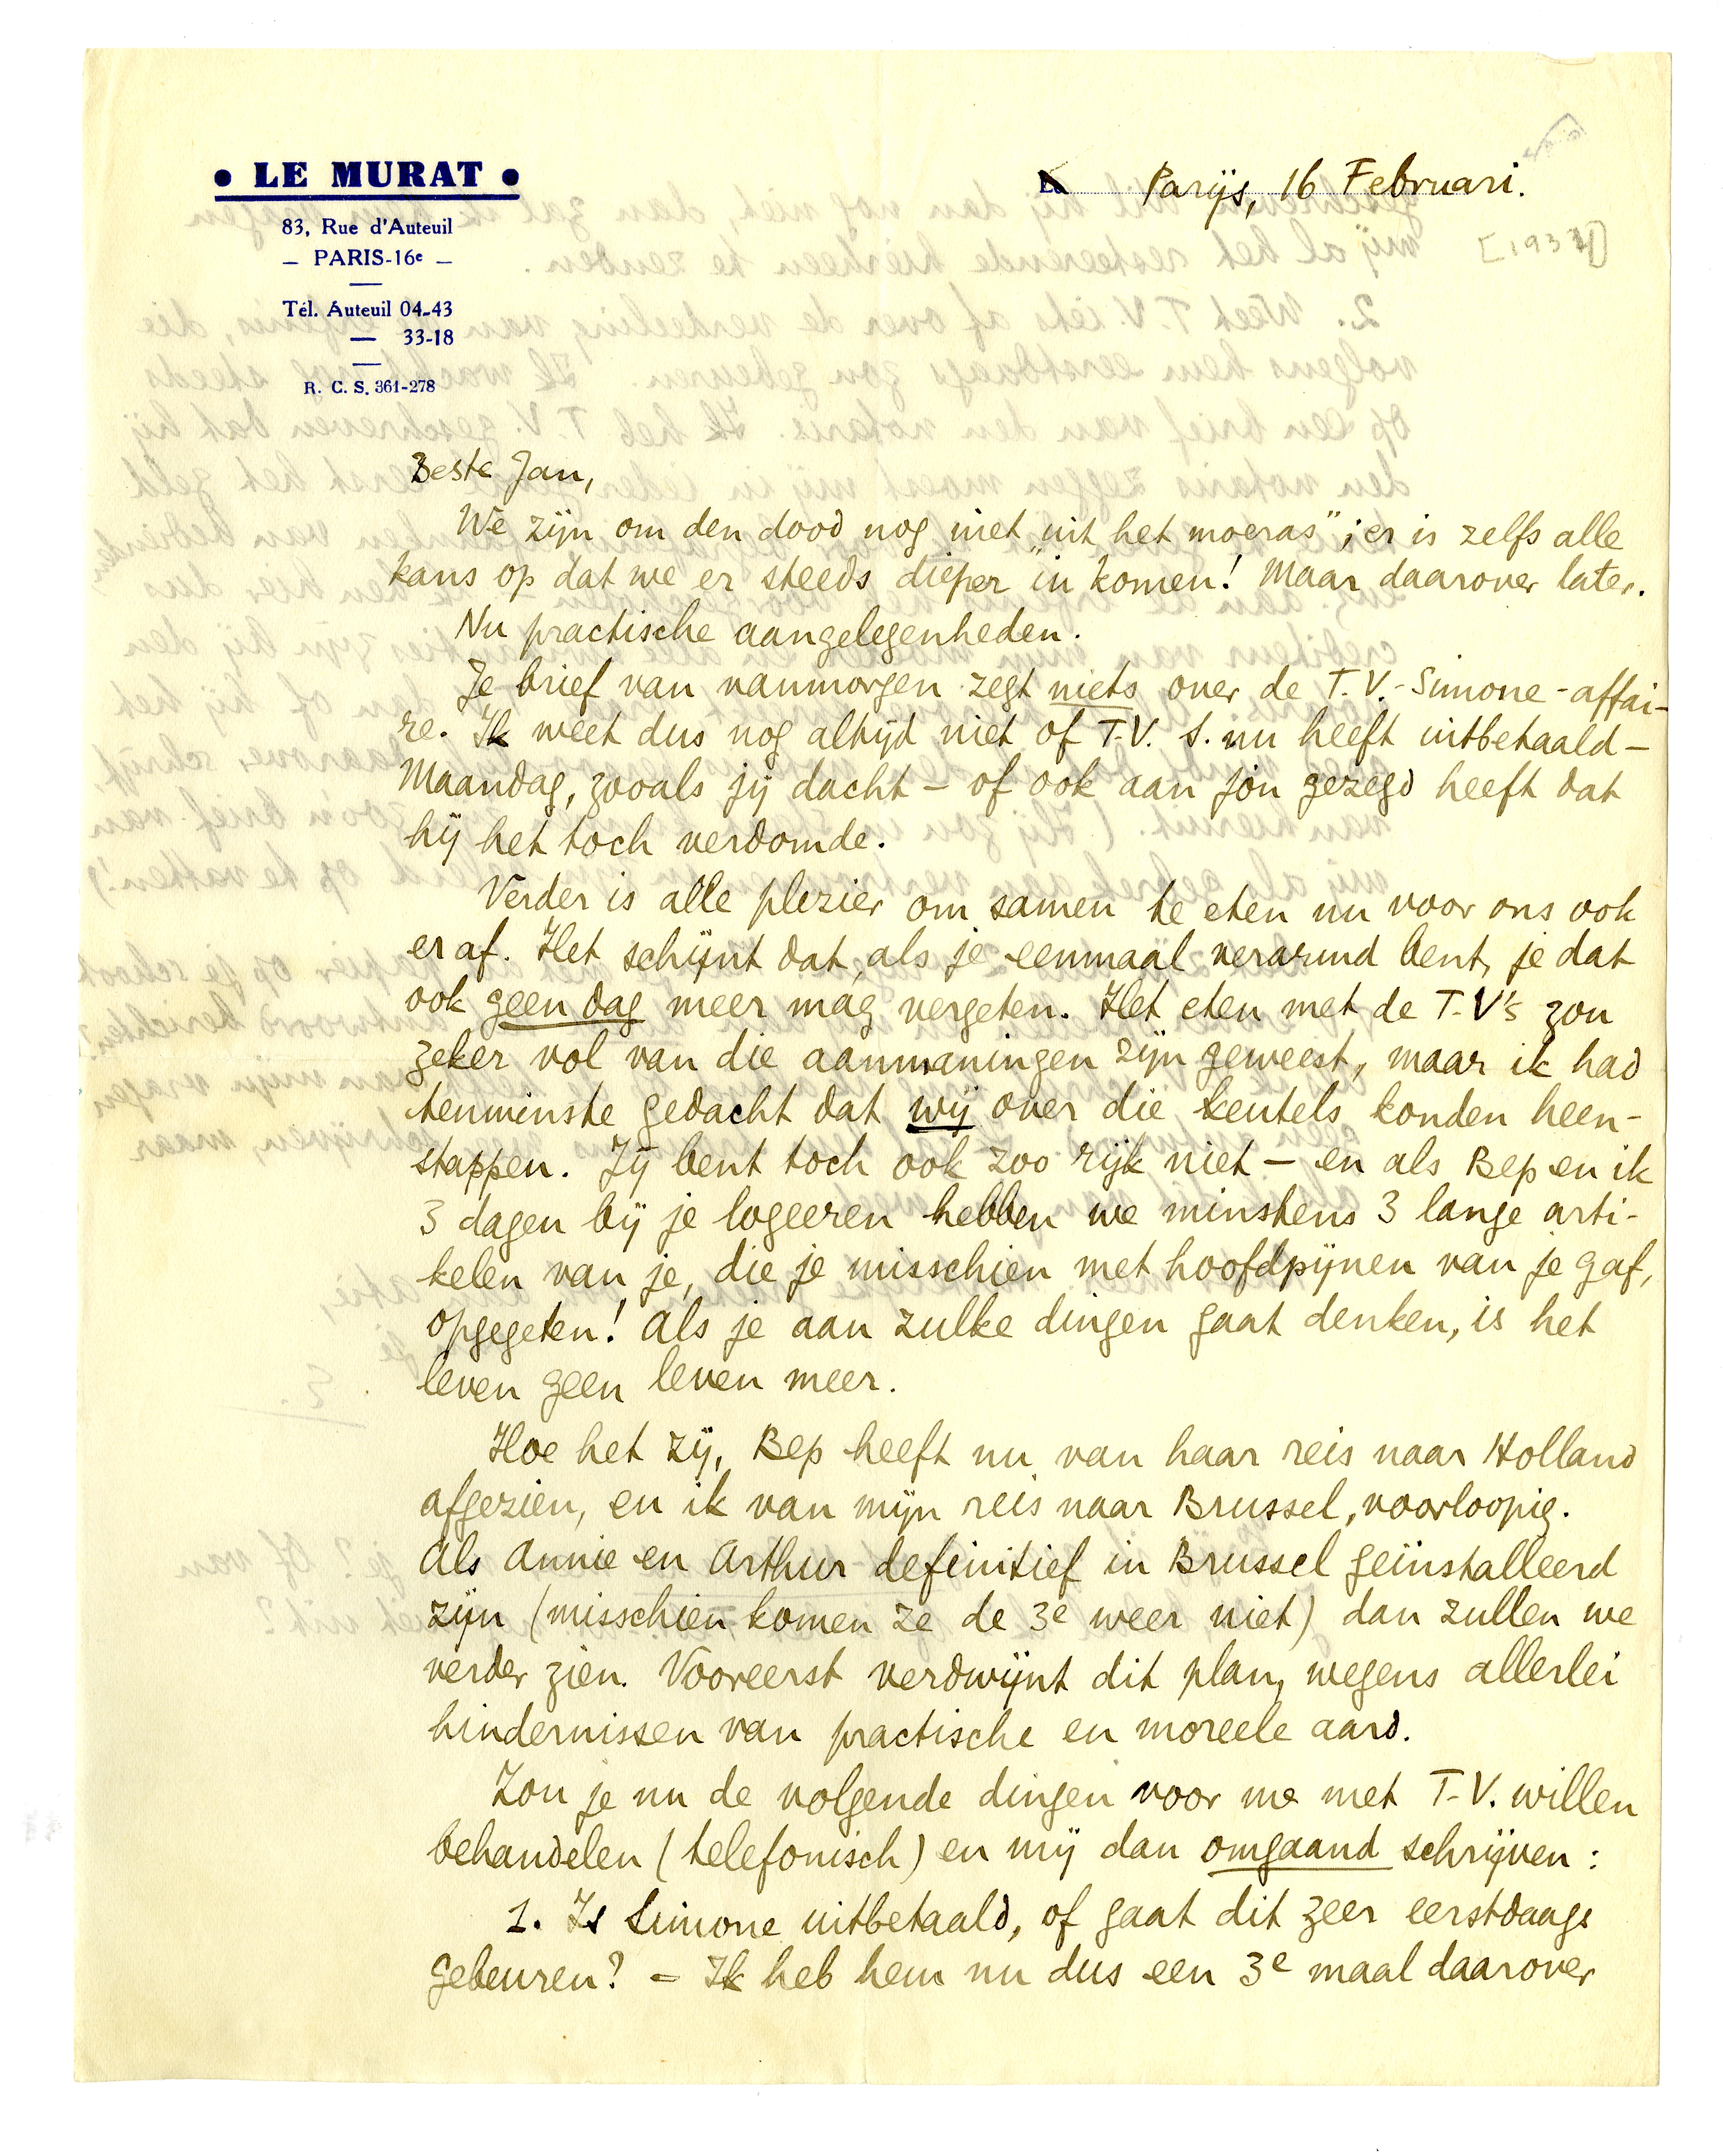 • LE MURAT •
83, Rue d'Auteuil
— PARIS-16e —
Tél. Auteuil 04-43
— 33-18
R. C. S. 361-278
Parijs, 16 Februari.
Beste Jan,
We zijn om den dood nog niet "uit het moeras"; er is zelfs alle
kans op dat we er steeds dieper in komen! Maar daarover later.
Nu practische aangelegenheden.
Je brief van vanmorgen zegt niets over de T.V.-Simone-affai-
re. Ik weet dus nog altijd niet of T.V. S. nu heeft uitbetaald —
Maandag, zooals jij dacht — of ook aan jou gezegd heeft dat
hij het toch verdomde.
Verder is alle plezier om samen te eten nu voor ons ook
er af. Het schijnt dat, als je eenmaal verarmd bent, je dat
ook geen dag meer mág vergeten. Het eten met de T-V's zou
zeker vol van die aanmaningen zijn geweest, maar ik had
tenminste gedacht dat wij over die keutels konden heen-
stappen. Jij bent toch ook zoo rijk niet — en als Bep en ik
3 dagen bij je logeeren hebben we minstens 3 lange arti-
kelen van je, die je misschien met hoofdpijnen van je gaf,
opgegeten! Als je aan zulke dingen gaat denken, is het
leven geen leven meer.
Hoe het zij, Bep heeft nu van haar reis naar Holland
afgezien, en ik van mijn reis naar Brussel, voorloopig.
Als Annie en Arthur definitief in Brussel geïnstalleerd
zijn (misschien komen ze de 3e weer niet) dan zullen we
verder zien. Vooreerst verdwijnt dit plan, wegens allerlei
hindernissen van practische en moreele aard.
Zou je nu de volgende dingen voor me met T-V. willen
behandelen (telefonisch) en mij dan omgaand schrijven:
1. Is Simone uitbetaald, of gaat dit zeer eerstdaags
gebeuren? — Ik heb hem nu dus een 3e maal daarover